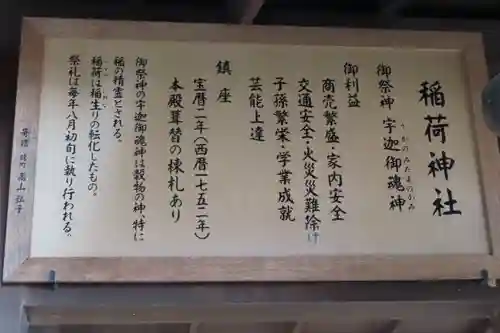 稲荷神社
御祭神 宇迦御魂神
うかのみたまのかみ
御利益
商売繁盛・家内安全
交通安全・火災災難除け
子孫繁栄・学業成就
芸能上達
鎮座
宝暦二年(西暦一七五二年)
本殿葺替の棟札あり
御祭神の宇迦御魂神は穀物の神、特に
稲の精霊とされる。
稲荷は稲生りの転化したもの。
祭礼は毎年八月初旬に執り行われる。
高山 弘子